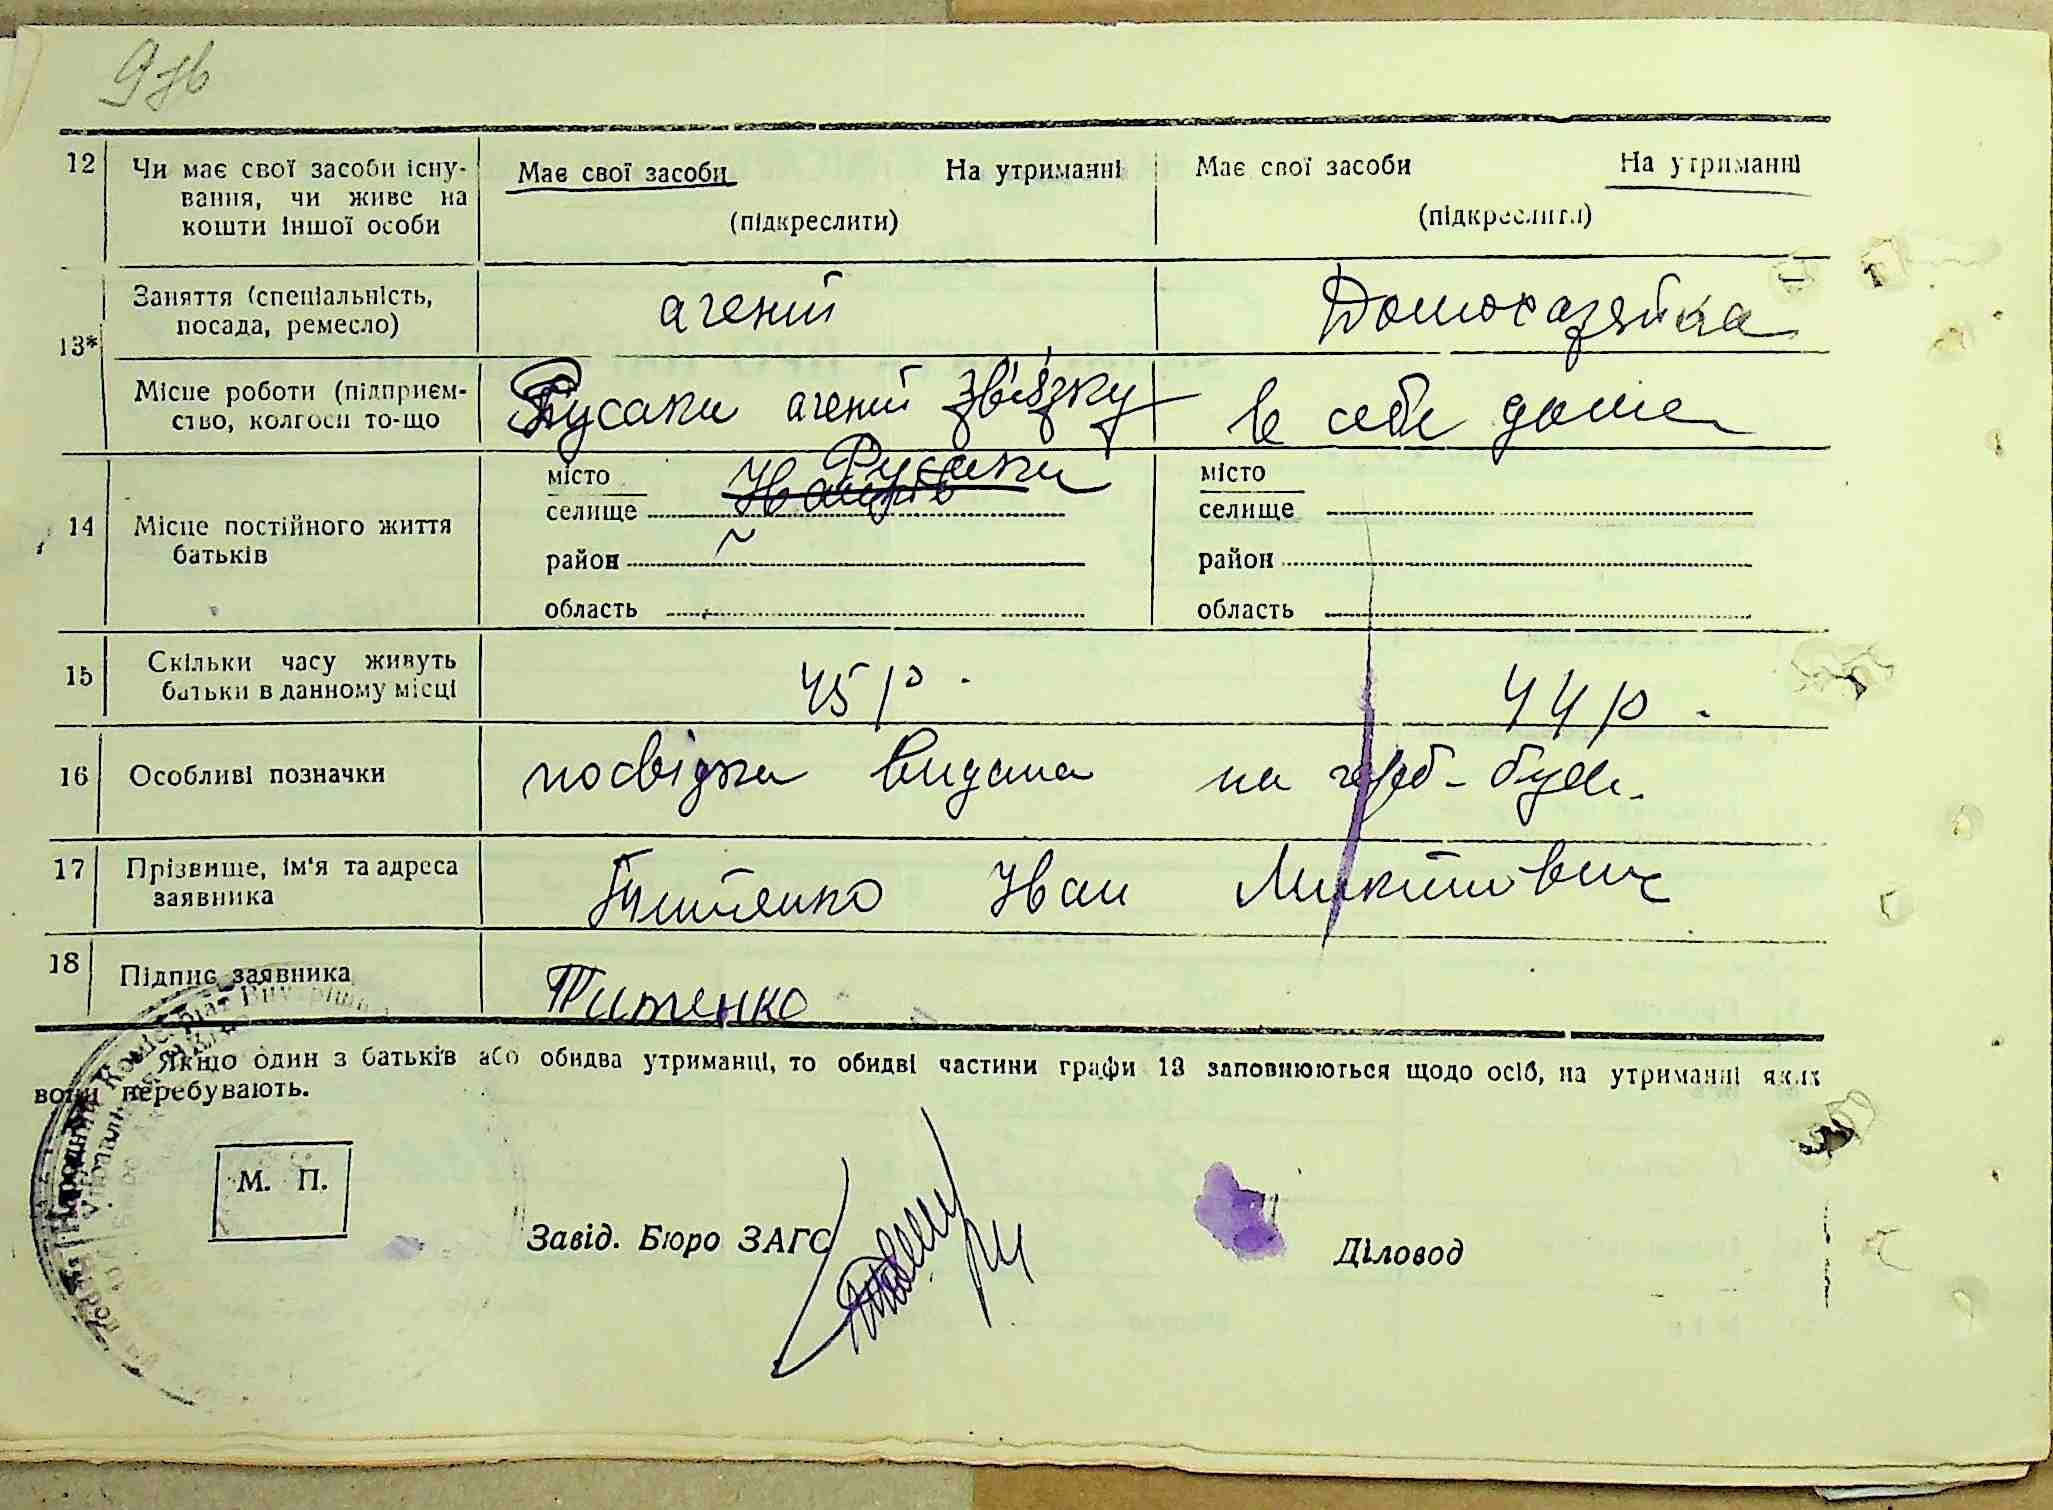 12 Чи має свої засоби існу-
вання, чи живе на
кошти іншої особи
Має свої засоби На утриманні
(підкреслити)
Має свої засоби На утриманні
(підкреслити)
13*
Заняття (спеціальність,
посада, ремесло)
агент
Домохазяйка
Місце роботи (підприєм-
ство, колгосп то-що
Русаки агент зв'язку
в себе дома
14 Місце постійного життя
батьків
місто Русаки
селище
район
область
місто
селище
район
область
15 Скільки часу живуть
батьки в данному місці
45 р.
44 р.
16 Особливі позначки
посвідка видана на герб-
17 Прізвище, ім'я та адреса
заявника
Титенко Іван Микитович
18 Підпис заявника
Титенко
Якщо один з батьків або обидва утриманці, то обидві частини графи 13 заповнюються щодо осіб, на утриманні яких
вони перебувають.
М. П.
Завід. Бюро ЗАГС
Діловод